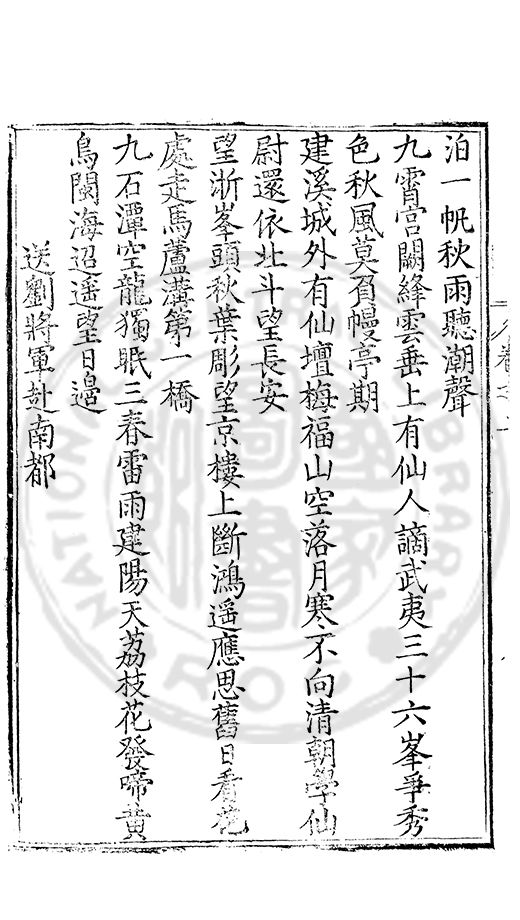 泊一帆秋雨聽潮聲
九霄宮闕絳雲垂上有仙人謫武夷三十六峯爭秀
色秋風莫負幔亭期
建溪城外有仙壇梅福山空落月寒不向清朝學仙
尉還依北斗望長安
望浙峯頭秋葉彫望京樓上斷鴻遥應思舊日看花
處走馬蘆溝第一橋
九石潭空龍獨眠三春雷雨建陽天荔枝花發啼黄
鳥閩海迢遥望日邉
送劉將軍赴南都
NATIONAL LIBRARY
國家圖書館